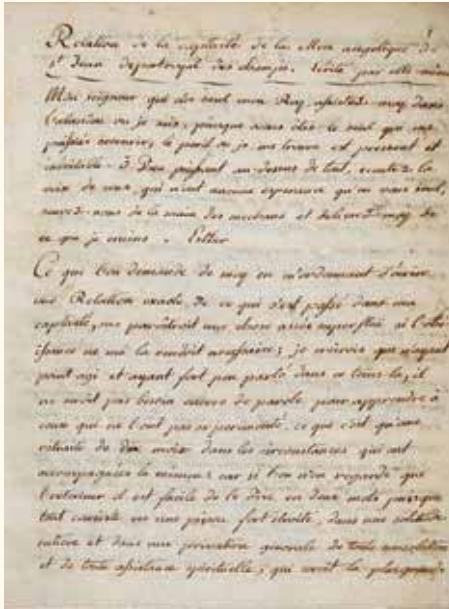 Relation de la captivité de la Mere angelique de
St Jean deportroyal des champs. Ecrite par elle même
Mon seigneur qui etes seul mon Roy, assistez-moy dans
l'abandon ou je suis, puisque vous êtes le seul qui me
puissiez secourir, le peril ou je me trouve est present et
inévitable. O Dieu puissant au dessus de tout, ecoutez la
voix de ceux, qui n'ont aucune esperance qu'en vous seul,
sauvez-nous de la main des mechans et delivrez moy de
ce que je crains. Esther
Ce que l'on demande de moy en m'ordonnant d'écrire
une Relation exacte de ce qui s'est passé dans ma
captivité, me paroîtroit une chose assés superflüe si l'obé
issance ne me la rendoit necessaire; je croirois que n'ayant
point agi et ayant fort peu parlé dans ce tems la, il
ne seroit pas besoin encore de parole pour apprendre à
ceux qui ne l'ont pas experimenté ce que c'est qu'une
retraite de dix mois dans les circonstances qui ont
accompagnées la mienne; car si l'on n'en regarde que
l'exterieur il est facile de le dire en deux mots puisque
tout consiste en une prison fort étroite, dans une solitude
entiere et dans une privation generale de toute consolation
et de toute assistance spirituelle, qui seroit la plus grande